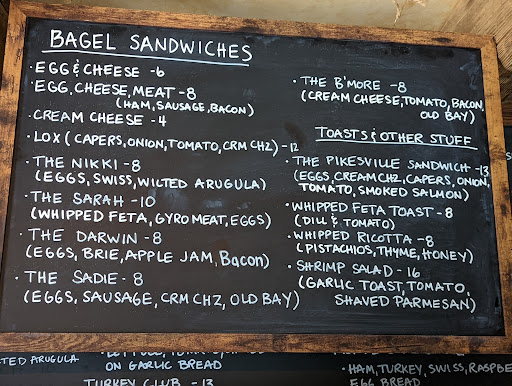 BAGEL SANDWICHES
· EGG & CHEESE - 6
· EGG, CHEESE, MEAT - 8
(HAM, SAUSAGE, BACON)
· CREAM CHEESE - 4
· LOX (CAPERS, ONION, TOMATO, CRM CHZ) - 12
· THE NIKKI - 8
(EGGS, SWISS, WILTED ARUGULA)
· THE SARAH - 10
(WHIPPED FETA, GYRO MEAT, EGGS)
· THE DARWIN - 8
(EGGS, BRIE, APPLE JAM, BACON)
· THE SADIE - 8
(EGGS, SAUSAGE, CRM CHZ, OLD BAY)
· THE B'MORE - 8
(CREAM CHEESE, TOMATO, BACON,
OLD BAY)
TOASTS & OTHER STUFF
· THE PIKESVILLE SANDWICH - 13
(EGGS, CREAM CHZ, CAPERS, ONION,
TOMATO, SMOKED SALMON)
· WHIPPED FETA TOAST - 8
(DILL & TOMATO)
· WHIPPED RICOTTA - 8
(PISTACHIOS, THYME, HONEY)
· SHRIMP SALAD - 16
(GARLIC TOAST, TOMATO,
SHAVED PARMESAN)
TED ARUGULA
ON GARLIC BREAD
TURKEY CLUB - 13
· HAM, TURKEY, SWISS, RASPBE
EGG BREAD